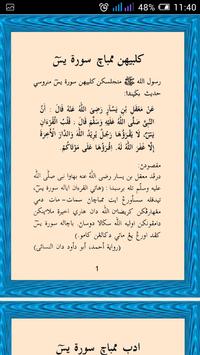 48%
11:40
كلبيهن ممباچ سورة يسٓ
رسول الله ﷺ منجلسكن كلبيهن سورة يسٓ منروسي
حديث بݢيندا:
عَنْ مَعْقِلِ بْنِ يَسَارٍ رَضِىَ اللَّهُ عَنْهُ قَالَ : أَنَّ النَّبِيَّ
صَلَّى اللَّهُ عَلَيْهِ وَسَلَّمَ قَالَ : قَلْبُ الْقُرْءَانِ
يسٓ، لَا يَقْرَؤُهَا رَجُلٌ يُرِيدُ اللَّهَ وَالدَّارَ الْآخِرَةَ
إِلَّا غَفَرَ اللَّهُ لَهُ اقْرَؤُهَا عَلَى مَوْتَاكُمْ.
مقصودڽ:
درڤد معقل بن يسار رضى اللَّه عنه بهاوا نبي صلَّى اللَّه
عليه وسلَّم تله برسبدا : (هاتي القرءان اياله سورة يسٓ.
تيدقله سسأورڠ ايت ممباچاڽ سمات- مات دمي
مڠهارڤكن كريضاءن اللَّه دان هاري اخيرة ملاءينكن
دأمڤونكن اللَّه دوساڽ. اوليه ايت باچاله سورة يسٓ
كڤد اورڠ يڠ تله ماتي دكالڠن كامو.)
(رواية أحمد، أبو داود دان النسائي)
1
ادب ممباچ سورة يسٓ